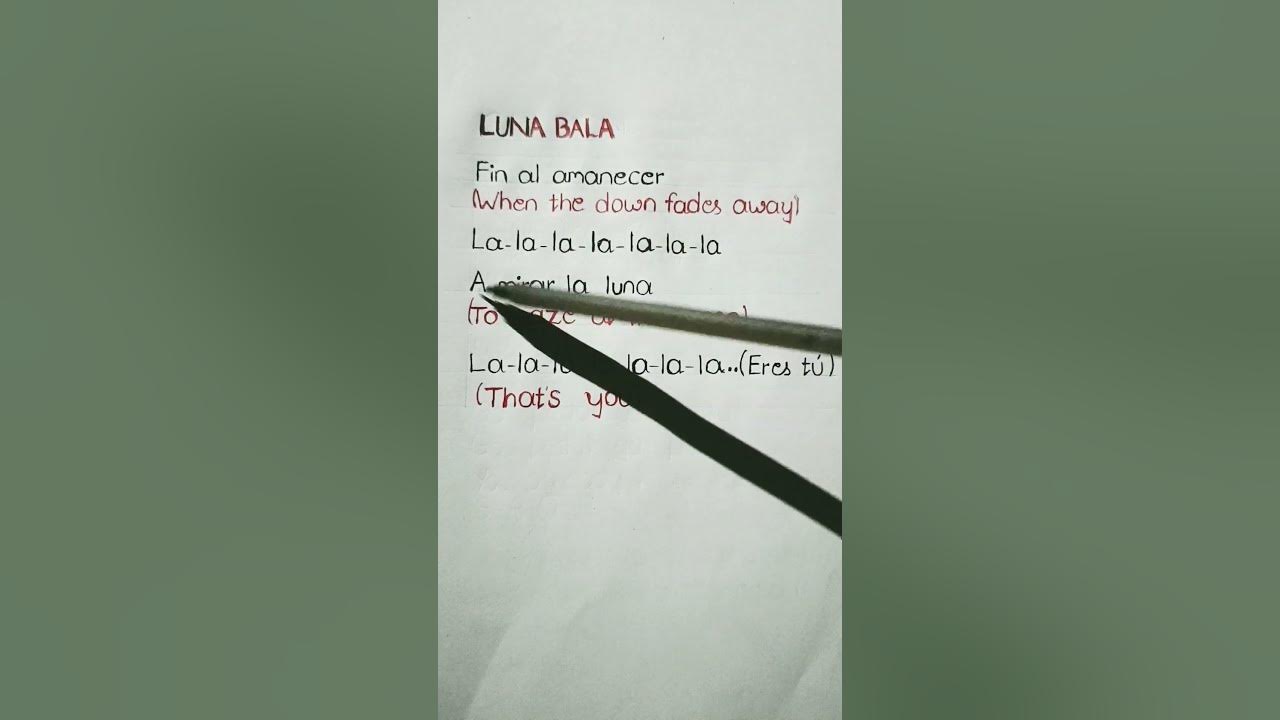 LUNA BALA
Fin al amanecer
(When the down fades away)
La-la-la-la-la-la-la
A mirar la luna
(To
La-la- la-la-la..(Eres tú)
(That's you